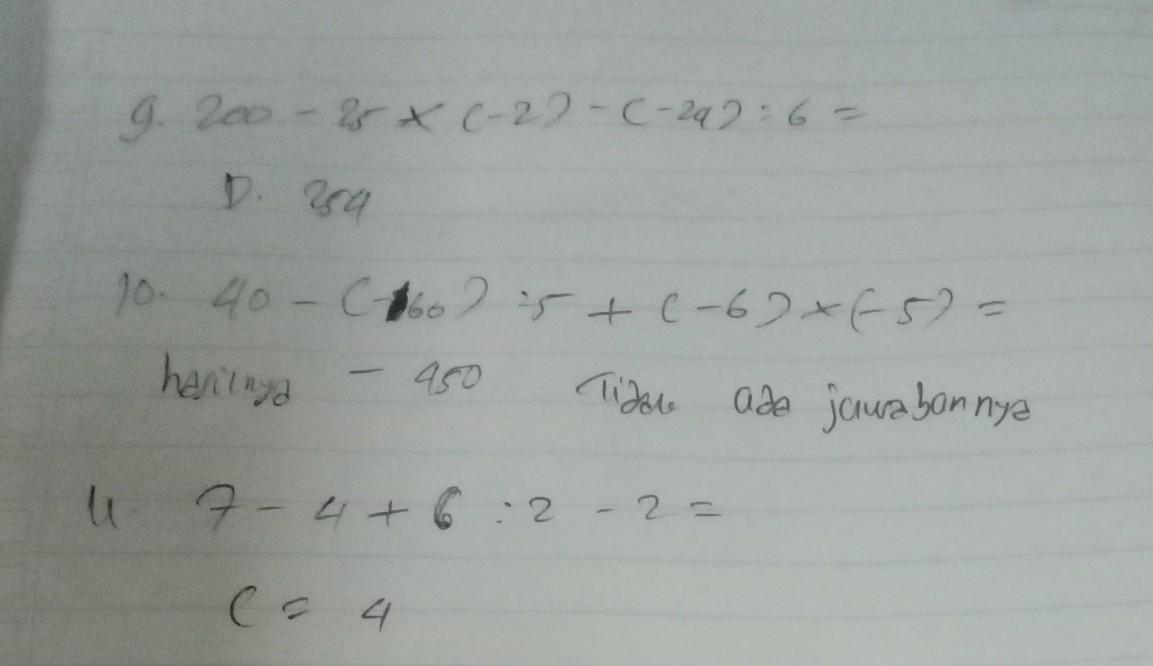 9. 200 - 25 × (-2) - (-24) : 6 =
D. 254
10. 40 - (-160) : 5 + (-6) × (-5) =
hasilnya - 450 Tidak ada jawabannya
11. 7 - 4 + 6 : 2 - 2 =
C = 4